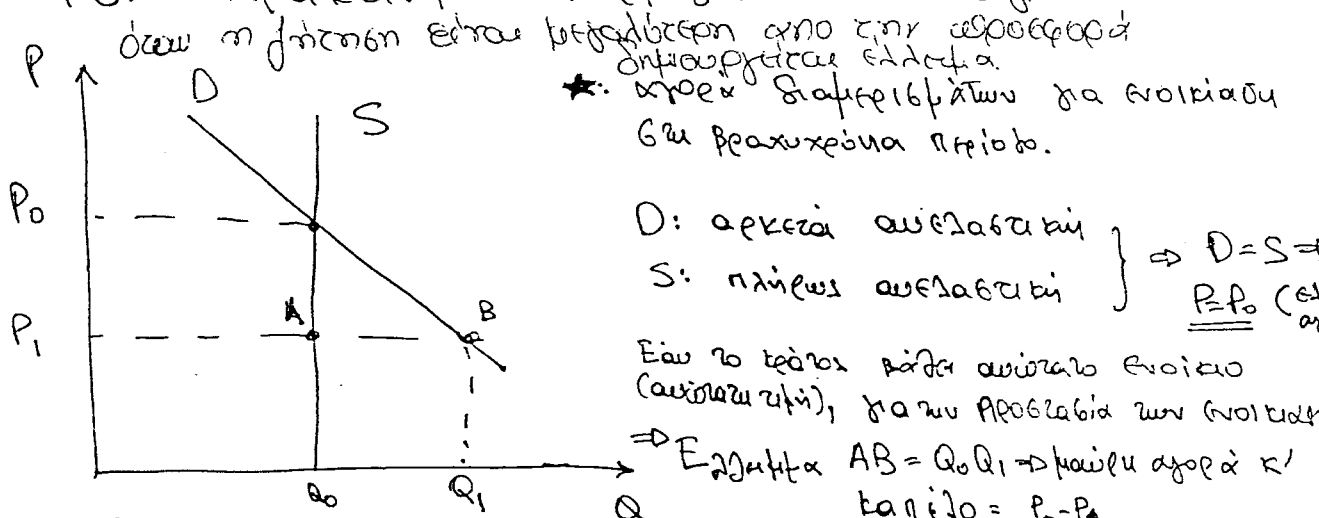 όταν η ζήτηση είναι μεγαλύτερη απο την προσφορά
δημιουργείται έλλειμμα.
P
D
S
★: αγορά διαμερισμάτων για ενοικίαση
στη βραχυχρόνια περίοδο.
P₀
D: αρκετά ανελαστική
S: πλήρως ανελαστική
} ⇒ D=S ⇒
P=P₀
P₁
A
B
Εάν το κράτος βάλει ανώτατο ενοίκιο
(ανώτατη τιμή), για την προστασία των
⇒ Έλλειμμα AB = Q₀Q₁ ⇒ μαύρη αγορά κ'
καπέλο = P₀-P₁
Q₀
Q₁
Q